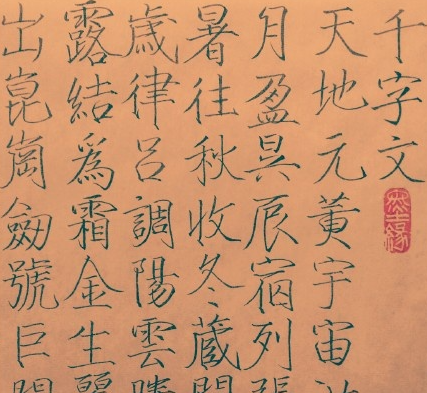 千字文
天地元黃宇宙
月盈昃辰宿列張
暑往秋收冬藏
歲律呂調陽雲
露結爲霜金生麗
出崑崗劔號巨